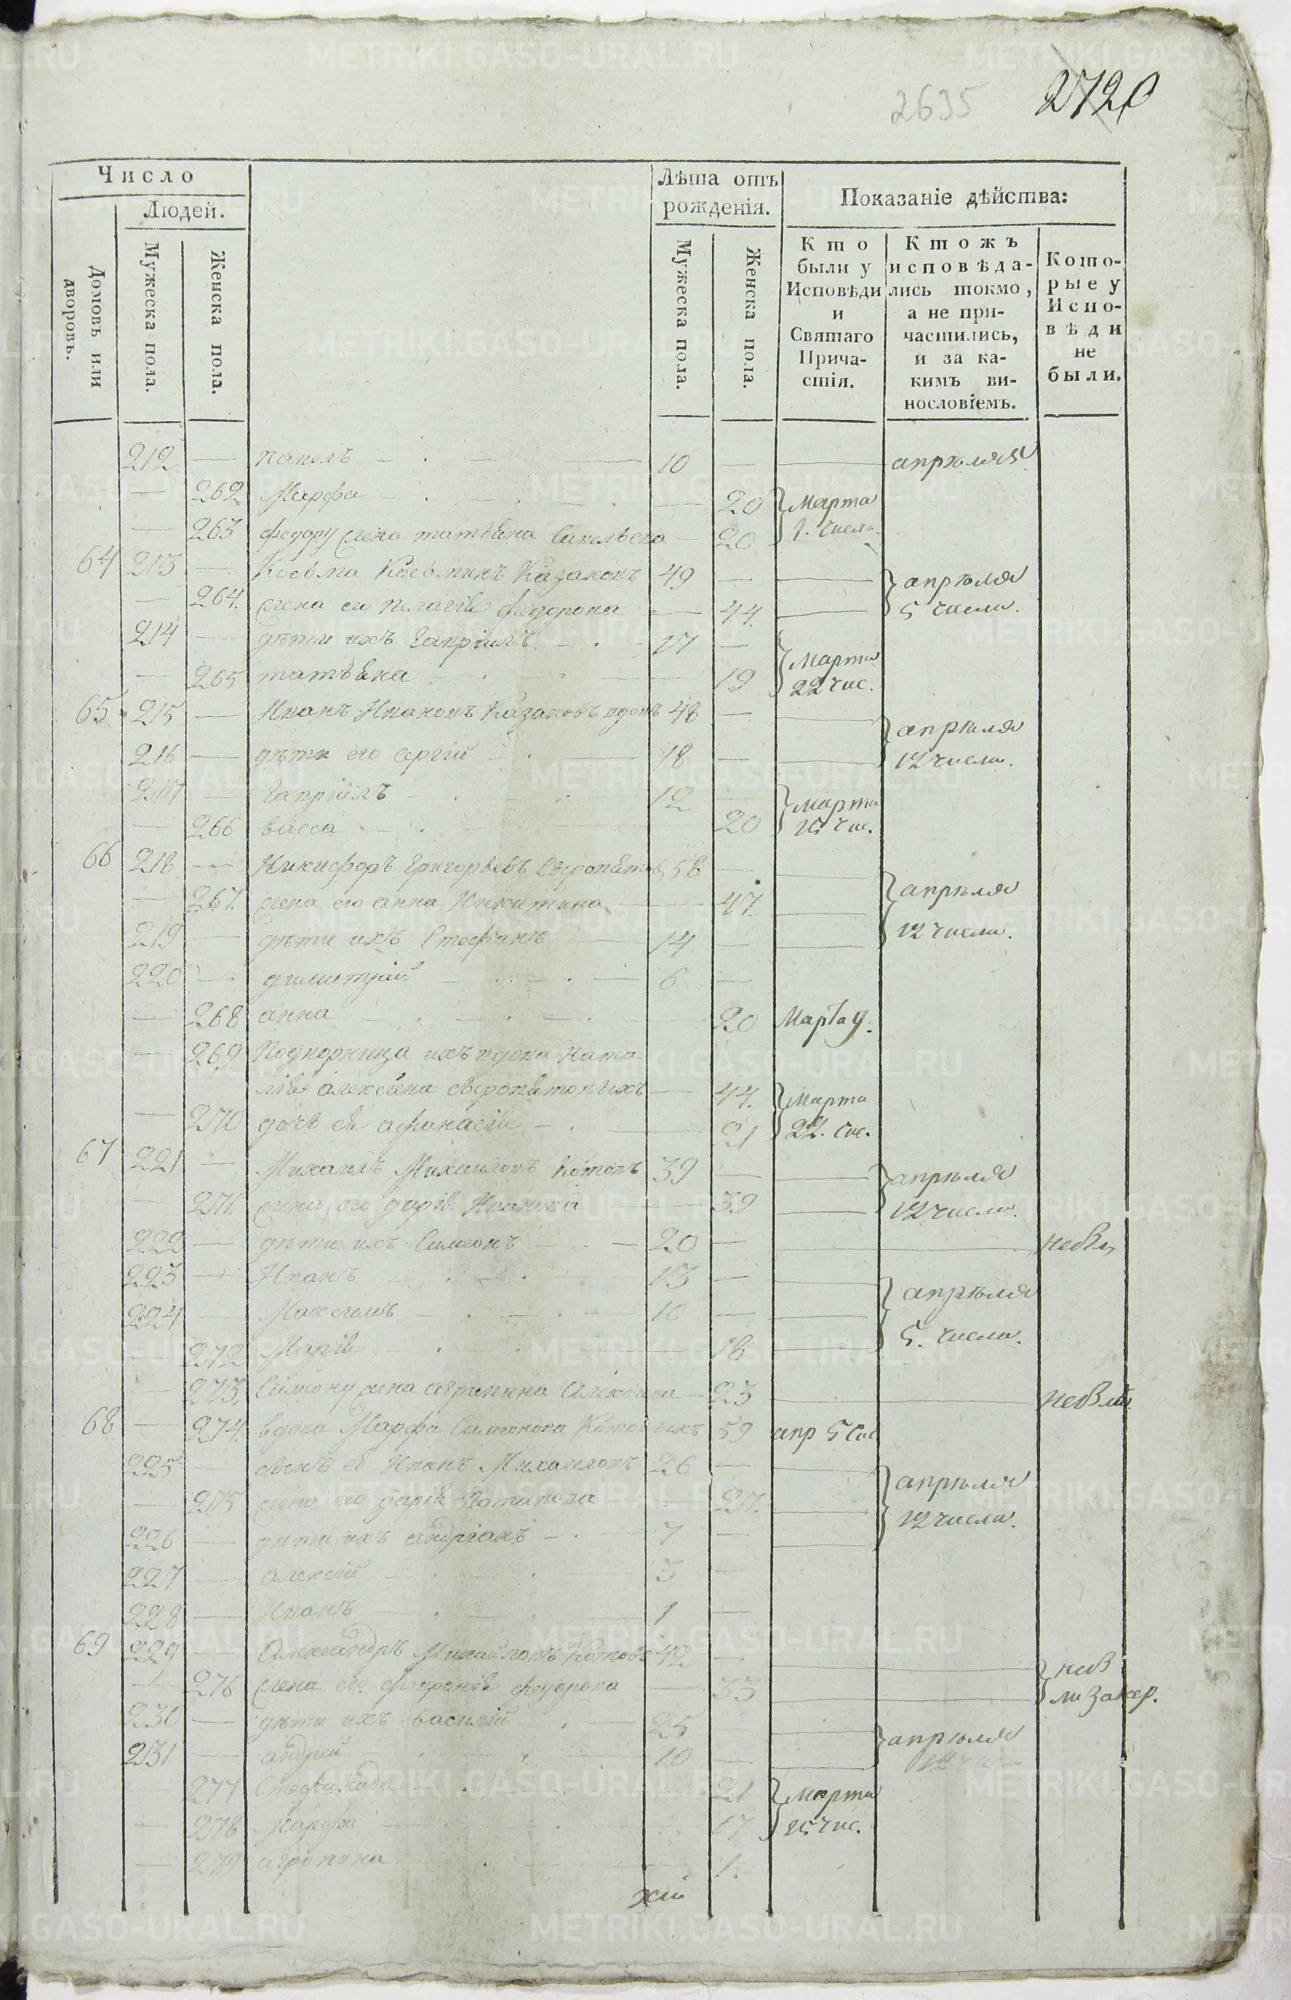 2635 2720
Число
Людей.
Домовъ или дворовъ.
Мужеска пола.
Женска пола.
Лѣта отъ рожденія.
Мужеска пола.
Женска пола.
Показаніе дѣйства:
Кто были у Исповѣди и Святаго Причастія.
Ктожъ исповѣдались токмо, а не причастились, и за какимъ винословіемъ.
Которые у Исповѣди не были.
212 — павелъ — 10 — — апрѣля 5
— 262 Марфа — 20 Марта
— 263 федору жена татьяна Савельева — 20 1. числа
64 213 — Косьма Косьминъ Казаковъ 49 — — апрѣля
— 264. жена его пелагія федорова — 44. — 5 числа.
214 — дѣти ихъ Гавріилъ — 17 —
— 265 татьяна — 19 Марта 22 чис.
65 215 — Иванъ Ивановъ Казаковъ вдовъ 48 — апрѣля
216 — дѣти его сергій — 18 — — 12 числа.
217 — Гавріилъ — 12 — Марта
— 266 васса — 20 15 чис.
66 218 — Никифоръ Григорьевъ 58 — —
— 267. жена его анна Никитина — 47. — апрѣля
219 — дѣти ихъ Стефанъ — 14 — — 12 числа.
220 — димитрій — 6 —
— 268 анна — 20 Марта 9.
— 269 ихъ вдова Ната
лія алексѣева — 44. Марта
— 270 дочь ея афанасія — 21 22. чис.
67 221 — Михаилъ Михаиловъ Котовъ 39 — — апрѣля
— 271. жена его дарія Иванова — 39 — 12 числа.
222 — дѣти ихъ Симеонъ — 20 — —
223 — Иванъ — 13 — — апрѣля
224 — Максимъ — 10 — —
— 272 Марія — 18 — 5. числа.
— 273. Симеону жена агрипина — 23 —
68 — 274. вдова Марфа Симеонова Котовыхъ 59 апр 5 чис
225 — сынъ ея Иванъ Михаиловъ 26 — — апрѣля
— 275 жена его дарія — 27. — 12 числа.
226 — дѣти ихъ андріанъ — 7 — —
227 — алексій — 3 —
228 — Иванъ — 1 —
69 229 — Александръ Михайловъ Котовъ 42 — —
— 276 жена его федорова — 33 —
230 — дѣти ихъ василій — 25 — апрѣля
231 — андрей — 10 — — 12
277 — 21 Марта
— 278 Марфа — 17 15 чис.
— 279 агрипина — 1.
METRIKI.GASO-URAL.RU